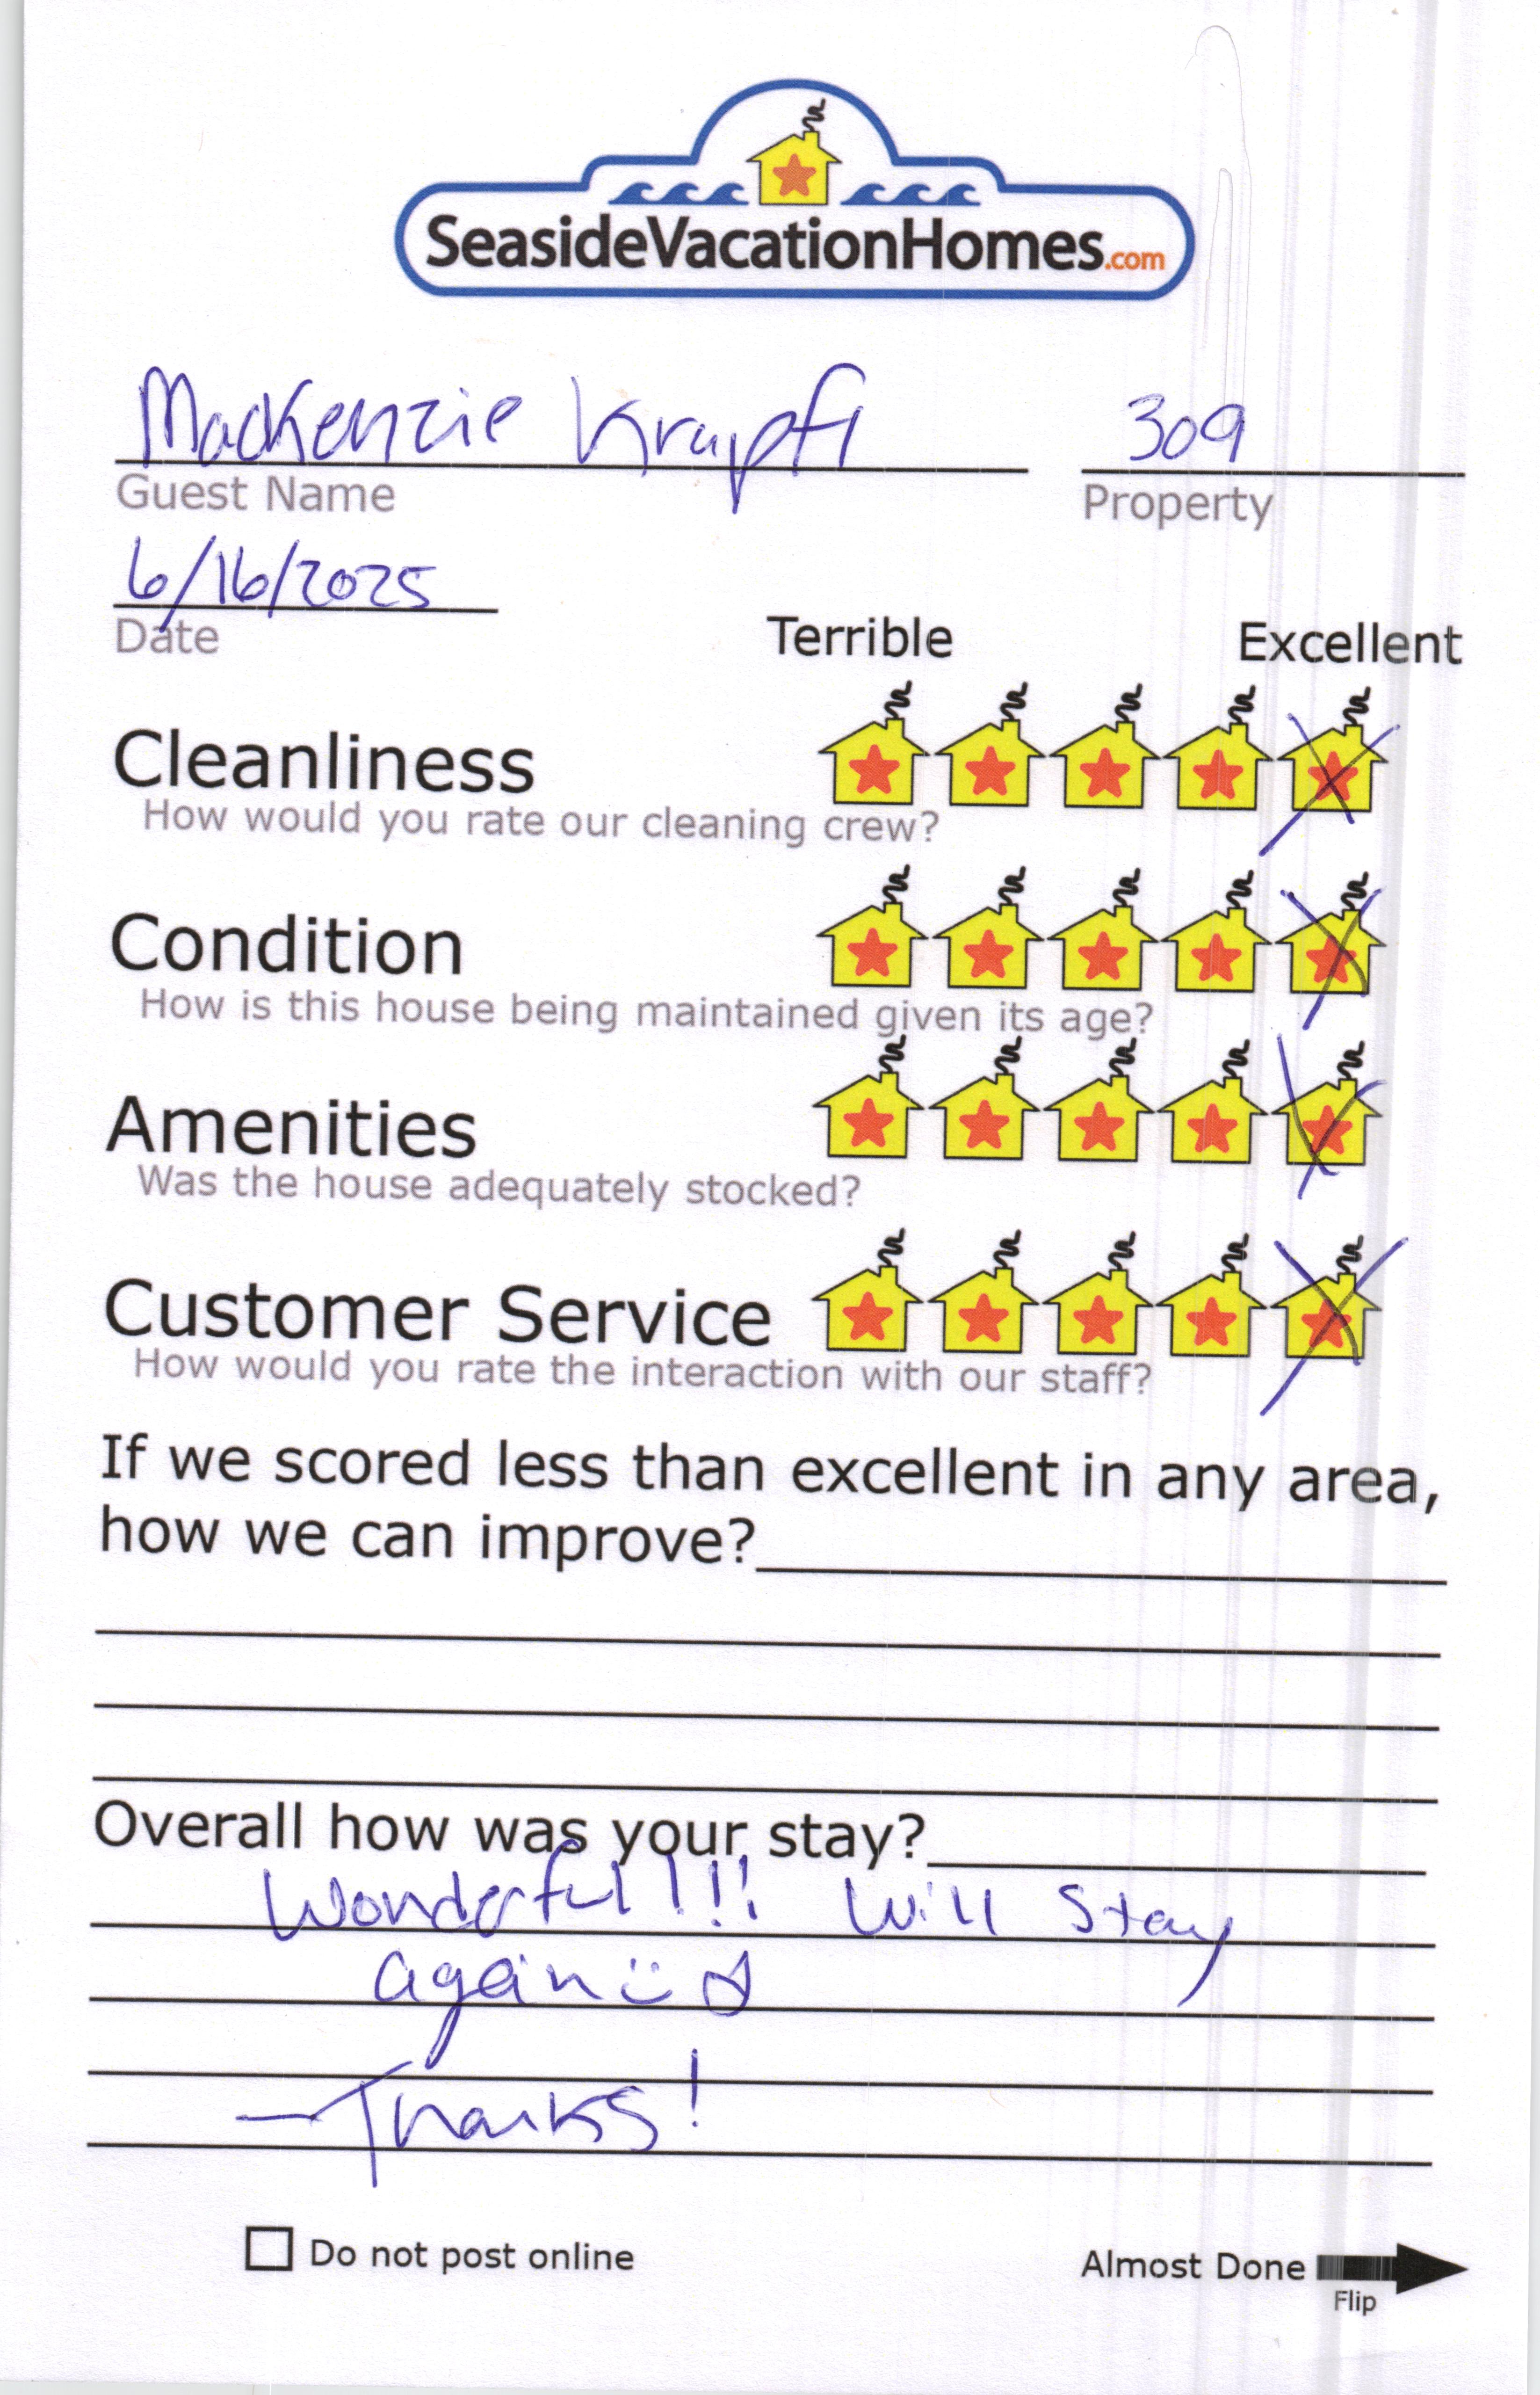 SeasideVacationHomes.com
Mackenzie Krapfl 309
Guest Name Property
6/16/2025
Date
Terrible Excellent
Cleanliness
How would you rate our cleaning crew?
Condition
How is this house being maintained given its age?
Amenities
Was the house adequately stocked?
Customer Service
How would you rate the interaction with our staff?
If we scored less than excellent in any area,
how we can improve?
Overall how was your stay?
Wonderful!!! Will Stay
again :)
—Thanks!
Do not post online Almost Done
Flip